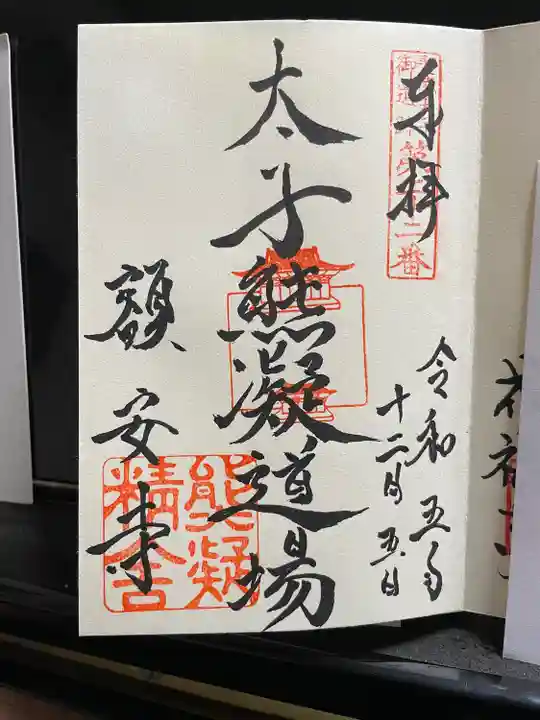 奉拝
令和五年
十二月五日
太子熊凝道場
額安寺
熊凝
精舎